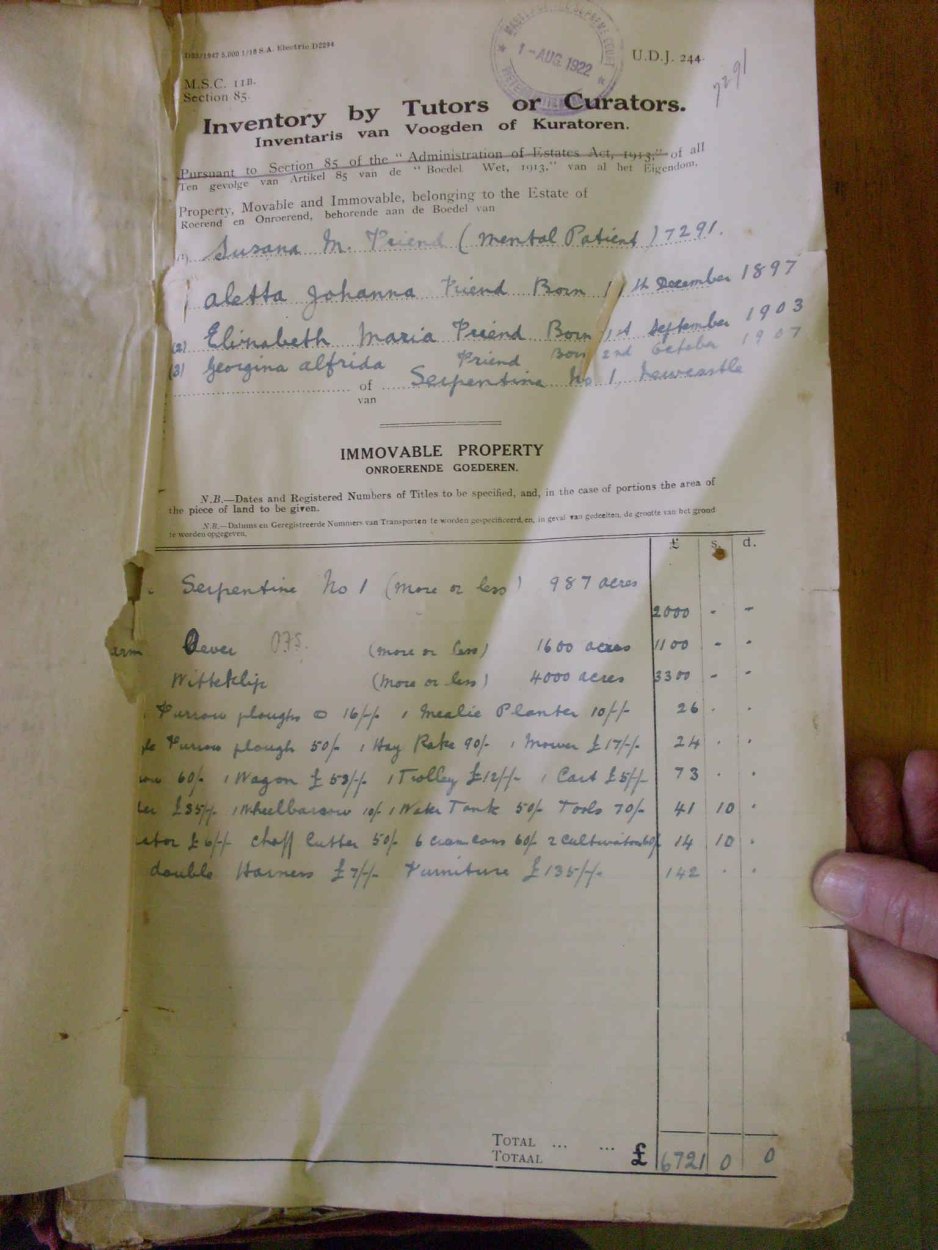 D93/1947 5,000 1/18 S.A. Electric D2294
MASTER OF THE SUPREME COURT
1-AUG 1922
U.D.J. 244.
7291
M.S.C. 11B.
Section 85.
Inventory by Tutors or Curators.
Inventaris van Voogden of Kuratoren.
Pursuant to Section 85 of the "Administration of Estates Act, 1913," of all
Ten gevolge van Artikel 85 van de "Boedel Wet, 1913." van al het Eigendom,
Property, Movable and Immovable, belonging to the Estate of
Roerend en Onroerend, behorende aan de Boedel van
(1) Susana M. Friend (Mental Patient) 7291.
Aletta Johanna Friend Born 11th December 1897
(2) Elizabeth Maria Friend Born 1st September 1903
(3) Georgina Alfrida Friend Born 2nd October 1907
of Serpentine No 1 Newcastle
van
IMMOVABLE PROPERTY
ONROERENDE GOEDEREN.
N.B.—Dates and Registered Numbers of Titles to be specified, and, in the case of portions the area of
the piece of land to be given.
N.B.—Datums en Geregistreerde Nummers van Transporten te worden gespecificeerd, en, in geval van gedeelten, de grootte van het grond
te worden opgegeven.
£ s. d.
Serpentine No 1 (more or less) 987 acres
2000 - -
arm Dever OFS. (more or less) 1600 acres 1100 - -
Witteklip (more or less) 4000 acres 3300 - -
Furrow ploughs @ 16/-/- 1 Mealie Planter 10/-/- 26 . .
le Furrow plough 50/- 1 Hay Rake 90/- 1 Mower £17/-/- 24 . .
60/- 1 Wagon £53/-/- 1 Trolley £12/-/- 1 Cart £5/-/- 73 . .
er £35/-/- 1 Wheelbarrow 10/- 1 Water Tank 50/- Tools 70/- 41 10 .
ator £6/-/- Chaff Cutter 50/- 6 cram cans 60/- 2 Cultivators 60/- 14 10 .
double Harness £7/-/- Furniture £135/-/- 142 . .
TOTAL ... ...
TOTAAL £ 6721 0 0